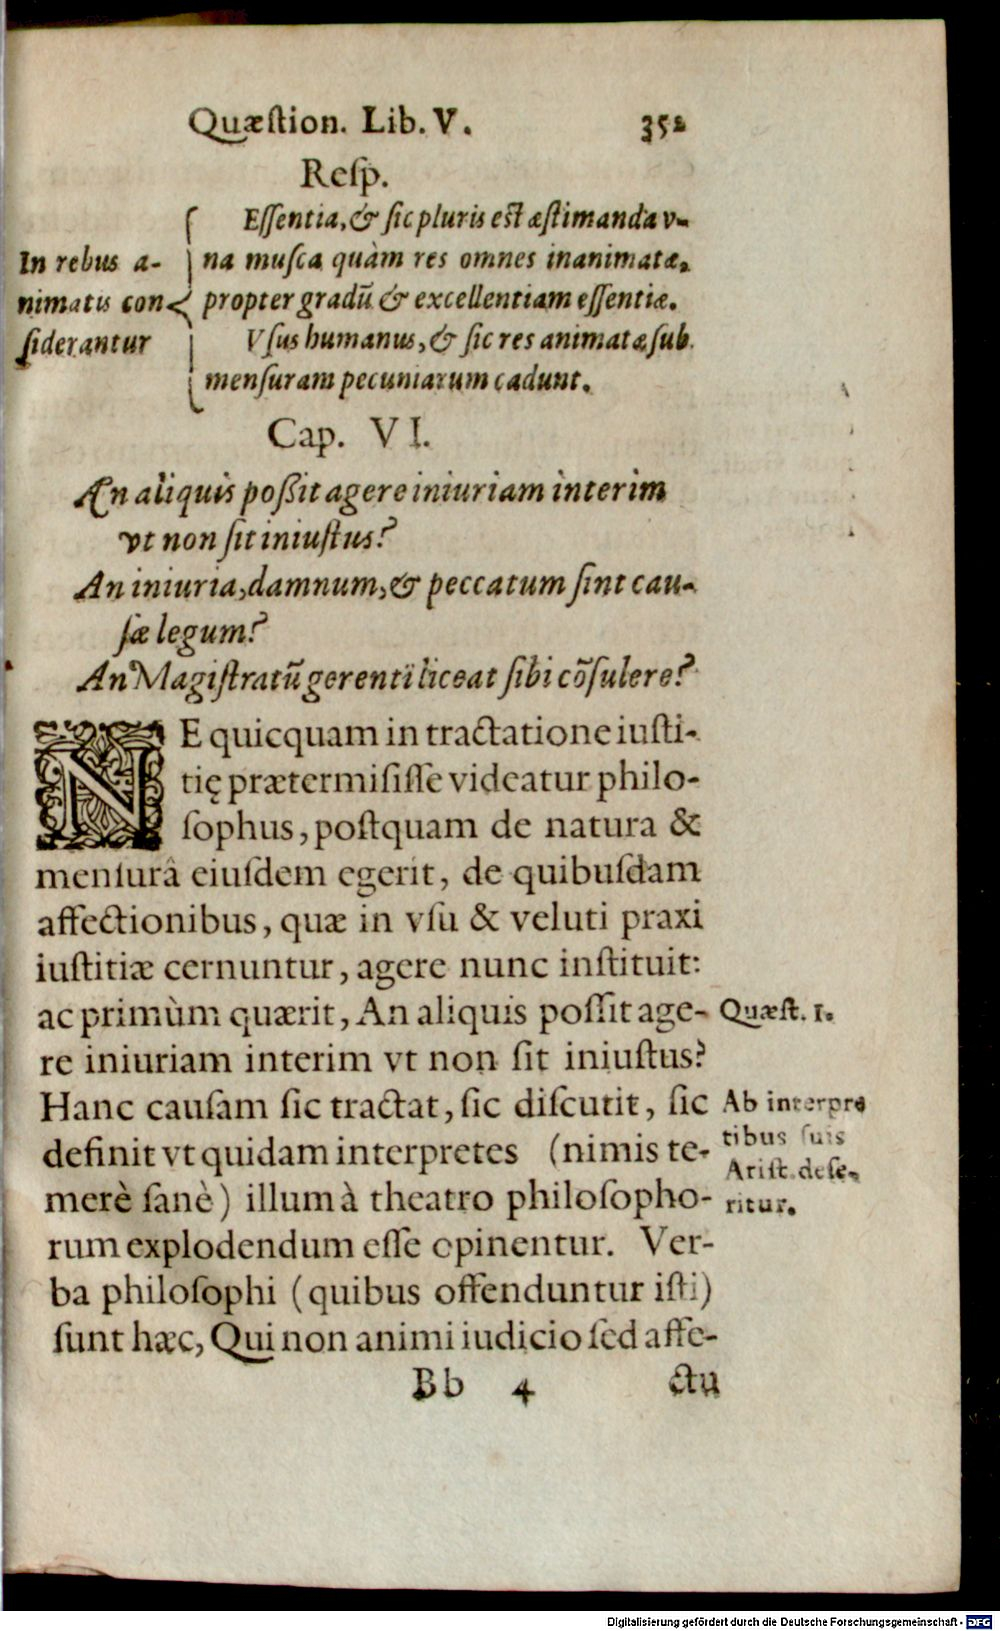 Quæstion. Lib. V. 352
Resp.
In rebus a-
nimatis con
siderantur
Essentia, & sic pluris est æstimanda v-
na musca quàm res omnes inanimatæ,
propter gradũ & excellentiam essentiæ.
Vsus humanus, & sic res animatæ sub
mensuram pecuniarum cadunt.
Cap. VI.
An aliquis poßit agere iniuriam interim
vt non sit iniustus?
An iniuria, damnum, & peccatum sint cau-
sæ legum?
An Magistratũ gerenti liceat sibi cõsulere?
NE quicquam in tractatione iusti-
tię prætermisisse videatur philo-
sophus, postquam de natura &
mensurâ eiusdem egerit, de quibusdam
affectionibus, quæ in vsu & veluti praxi
iustitiæ cernuntur, agere nunc instituit:
ac primùm quærit, An aliquis possit age-
re iniuriam interim vt non sit iniustus?
Hanc causam sic tractat, sic discutit, sic
definit vt quidam interpretes (nimis te-
merè sanè) illum à theatro philosopho-
rum explodendum esse opinentur. Ver-
ba philosophi (quibus offenduntur isti)
sunt hæc, Qui non animi iudicio sed affe-
Quæst. 1.
Ab interpre
tibus suis
Arist. dese-
ritur.
Bb 4 ctu
Digitalisierung gefördert durch die Deutsche Forschungsgemeinschaft - DFG